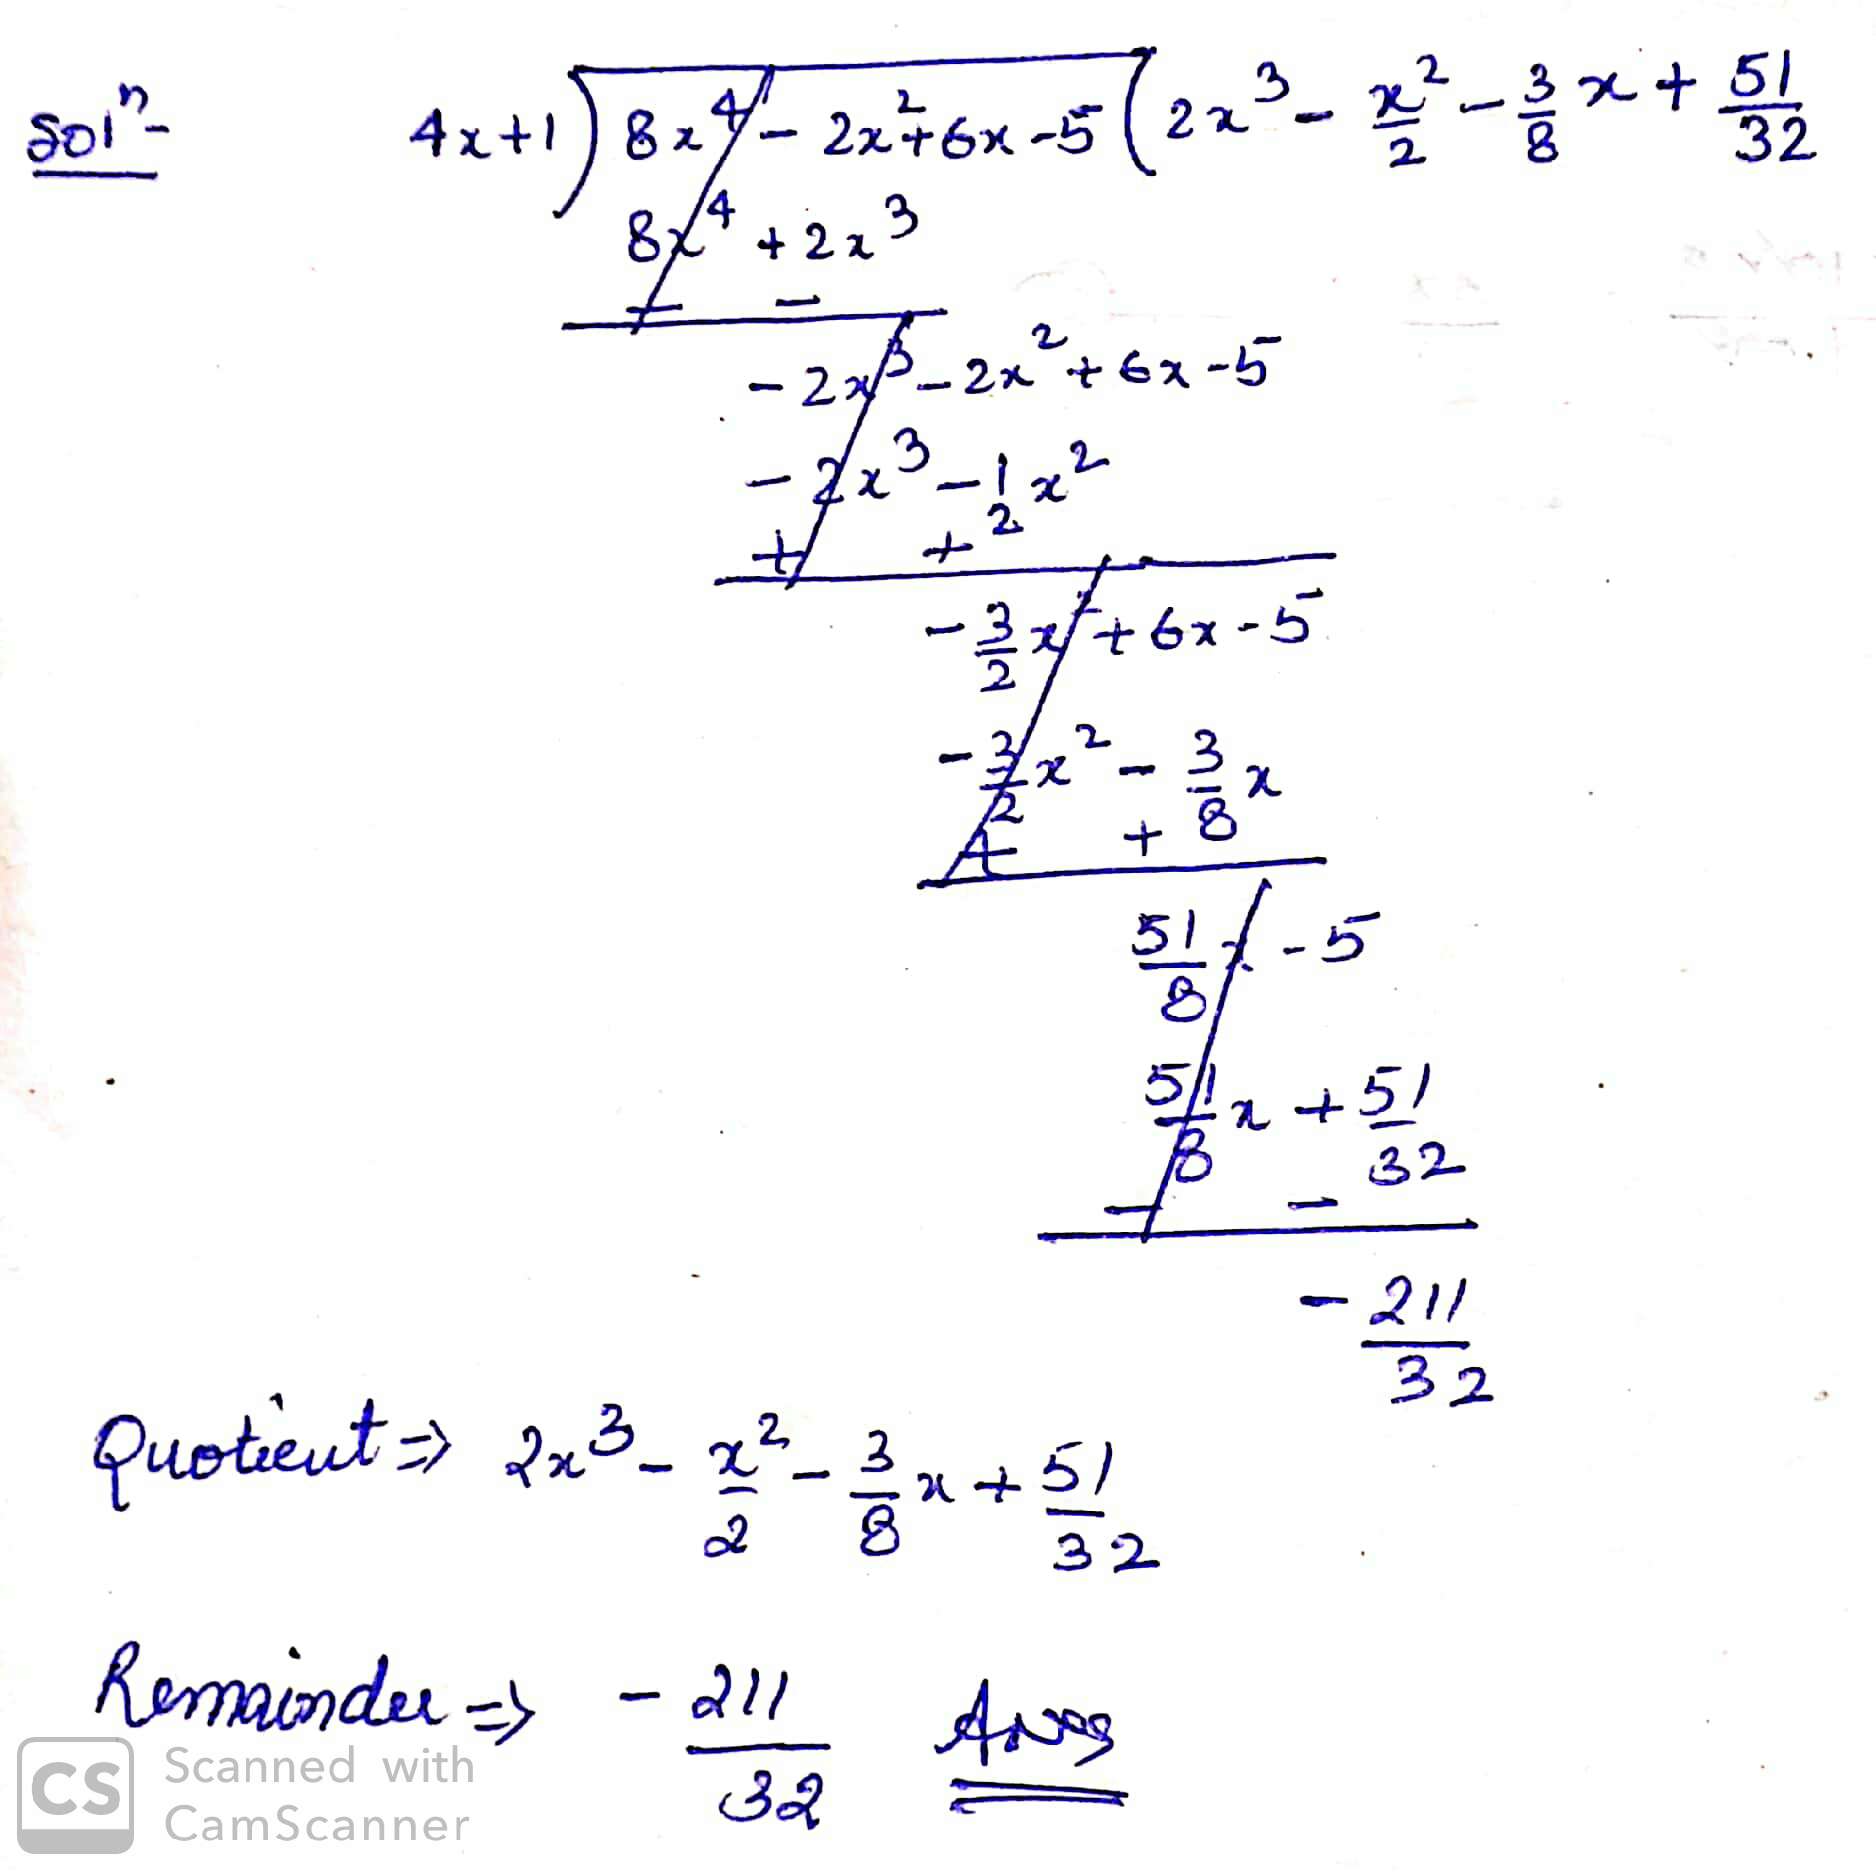 Solⁿ- 4x+1) 8x⁴ - 2x²+6x-5 ( 2x³ - x²/2 - 3/8 x + 51/32
8x⁴ + 2x³
- -
-2x³ - 2x² + 6x - 5
-2x³ - 1/2 x²
+ +
-3/2 x² + 6x - 5
-3/2 x² - 3/8 x
+ +
51/8 x - 5
51/8 x + 51/32
- -
- 211/32
Quotient ⇒ 2x³ - x²/2 - 3/8 x + 51/32
Remainder ⇒ - 211/32 Ans
CS Scanned with
CamScanner